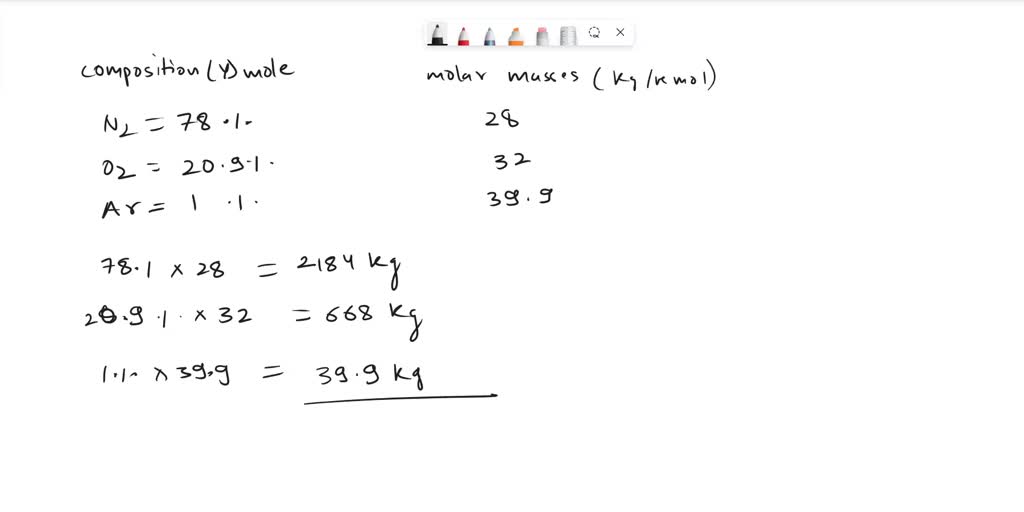 composition (Y) mole molar masses (kg/kmol)
N2 = 78 % 28
O2 = 20.9 % 32
Ar = 1 % 39.9
78 % × 28 = 2184 kg
20.9 % × 32 = 668 kg
1 % × 39.9 = 39.9 kg